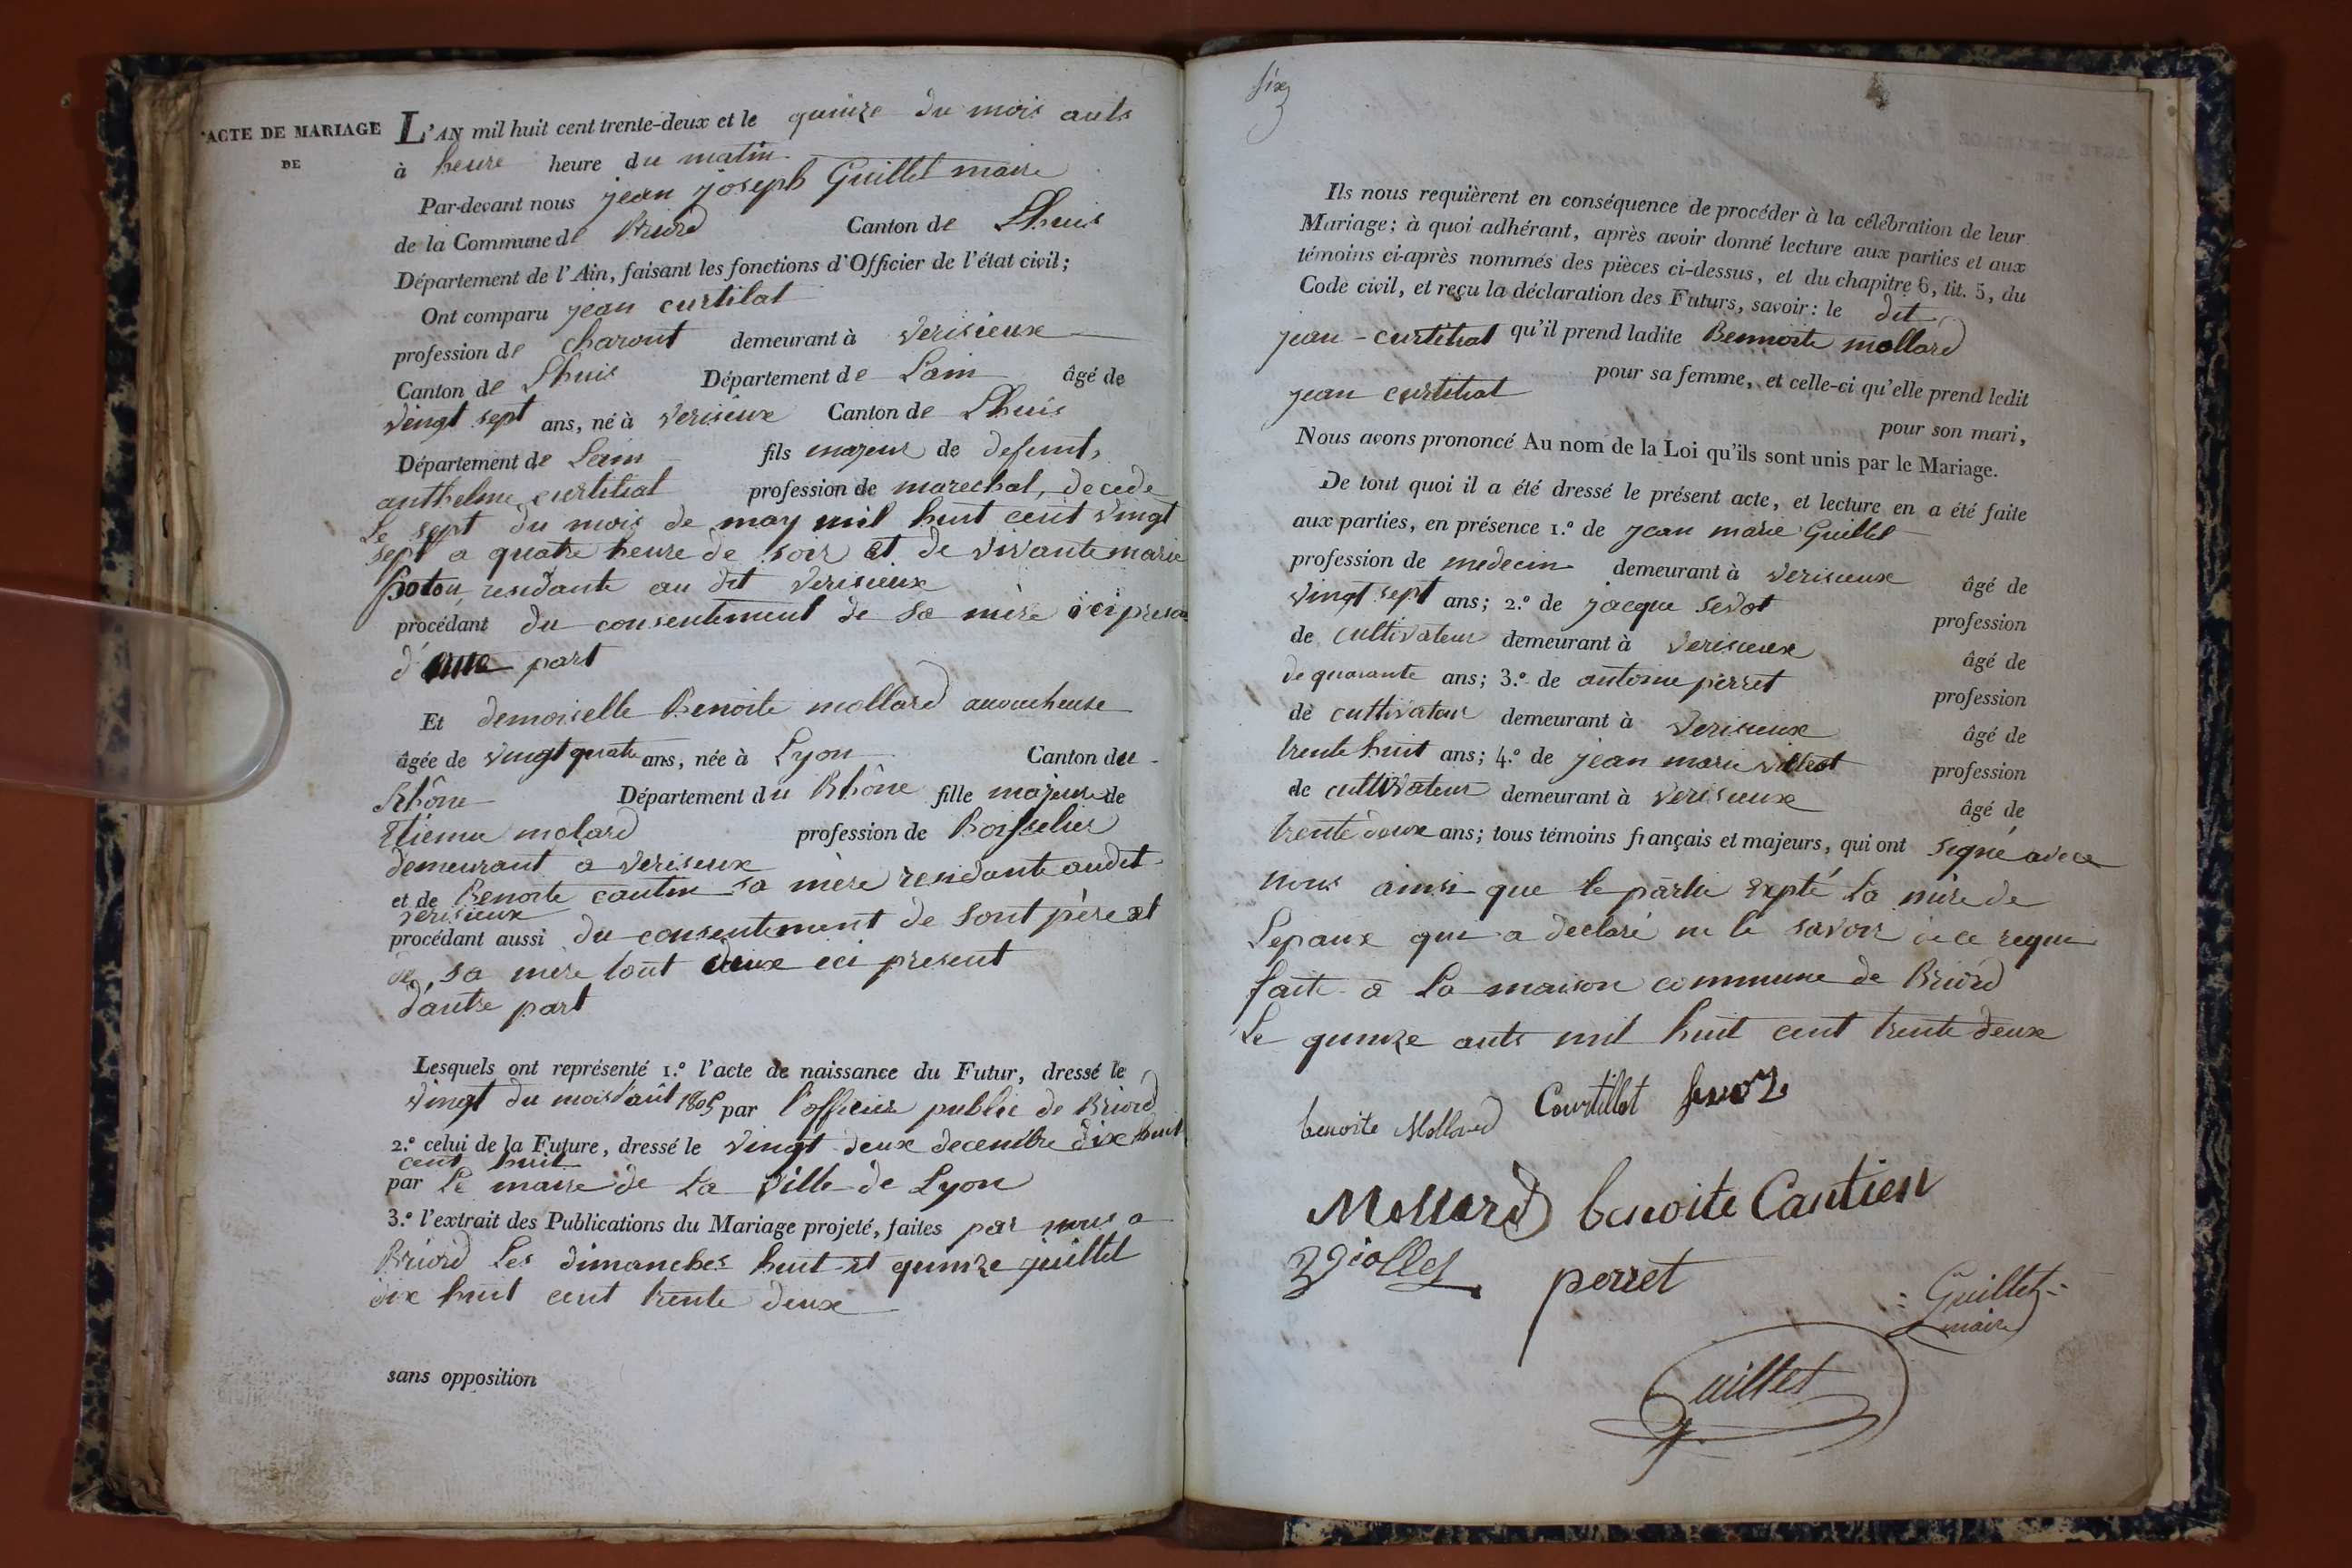 ACTE DE MARIAGE
DE
L'AN mil huit cent trente-deux et le quinze du mois auts
à heure heure du matin
Par-devant nous jean joseph Guillet maire
de la Commune de Briord Canton de Lhuis
Département de l'Ain, faisant les fonctions d'Officier de l'état civil;
Ont comparu jean curtilat
profession de charont demeurant à Verisieux
Canton de Lhuis Département de Lain âgé de
vingt sept ans, né à Verisieux Canton de Lhuis
Département de Lain fils majeur de defunt,
anthelme curtilat profession de marechal, decede
Le sept du mois de may mil huit cent vingt
sept a quatre heure de soir et de vivante marie
residante au dit verisieux
procédant du consentement de sa mère ici presan
d'une part
Et demoiselle Benoite mollard
âgée de vingt quatre ans, née à Lyon Canton du
Rhône Département du Rhône fille majeure de
Etienne molard profession de Boisselier
demeurant a verisieux
et de Benoite sa mère residante audit
verisieux
procédant aussi du consentement de sont père et
de sa mere tout deux ici present
d'autre part
Lesquels ont représenté 1.º l'acte de naissance du Futur, dressé le
vingt du mois d'aût 1805 par l'officier public de Briord
2.º celui de la Future, dressé le vingt deux decembre dix huit
cent huit
par Le maire de La ville de Lyon
3.º l'extrait des Publications du Mariage projeté, faites par nous a
Briord Les dimanches huit et quinze juillet
dix huit cent trente deux
sans opposition
six
Ils nous requièrent en conséquence de procéder à la célébration de leur
Mariage; à quoi adhérant, après avoir donné lecture aux parties et aux
témoins ci-après nommés des pièces ci-dessus, et du chapitre 6, tit. 5, du
Code civil, et reçu la déclaration des Futurs, savoir: le dit
jean - curtilat qu'il prend ladite Bennoite mollard
pour sa femme, et celle-ci qu'elle prend ledit
jean curtilat pour son mari,
Nous avons prononcé Au nom de la Loi qu'ils sont unis par le Mariage.
De tout quoi il a été dressé le présent acte, et lecture en a été faite
aux parties, en présence 1.º de jean marie Guillet
profession de medecin demeurant à verisieux âgé de
vingt sept ans; 2.º de jacque sevoz profession
de cultivateur demeurant à verisieux âgé de
de quarante ans; 3.º de antoine perret profession
de cultivateur demeurant à verisieux âgé de
trente huit ans; 4.º de jean marie profession
de cultivateur demeurant à verisieux âgé de
trente deux ans; tous témoins français et majeurs, qui ont signé avec
nous ainsi que le partie expté La mère de
Lepaux qui a declaré ne le savoir de ce requi
fait a La maison commune de Briord
Le quinze auts mil huit cent trente deux
benoite Mollard Courtillet sevoz
Mollard benoite Cantien
perret
Guillet
maire
Guillet